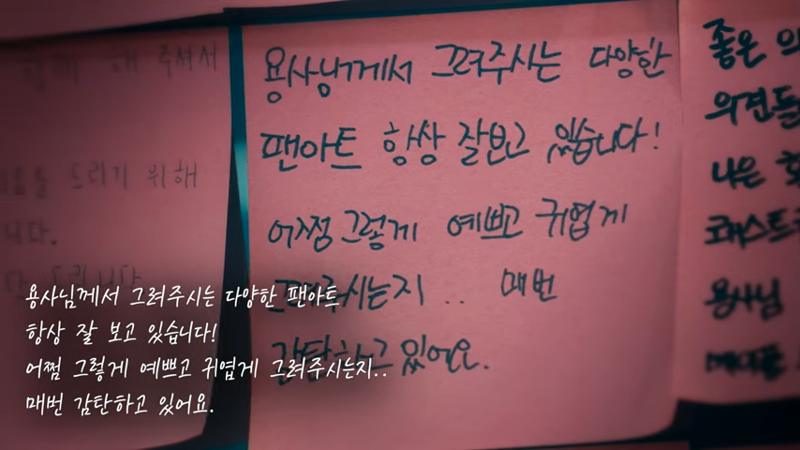 해 주셔서
드리기 위해
니다.
용사님께서 그려주시는 다양한
팬아트 항상 잘보고 있습니다!
어쩜 그렇게 예쁘고 귀엽게
그려주시는지.. 매번
감탄하고 있어요.
좋은 의
의견들
나은
용사님
메이플
용사님께서 그려주시는 다양한 팬아트
항상 잘 보고 있습니다!
어쩜 그렇게 예쁘고 귀엽게 그려주시는지..
매번 감탄하고 있어요.